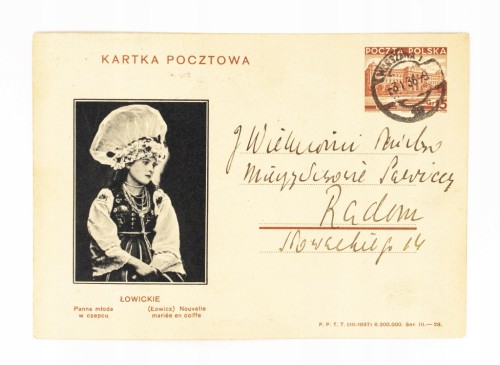 KARTKA POCZTOWA
POCZTA POLSKA
WARSZAWA 1
15
J Wielmożni
Radom
Słowackiego 14
ŁOWICKIE
Panna młoda
w czepcu
(Łowicz) Nouvelle
mariée en coiffe
P. P. T. T. (III-1937) 6.200.000. Ser. III.— 28.